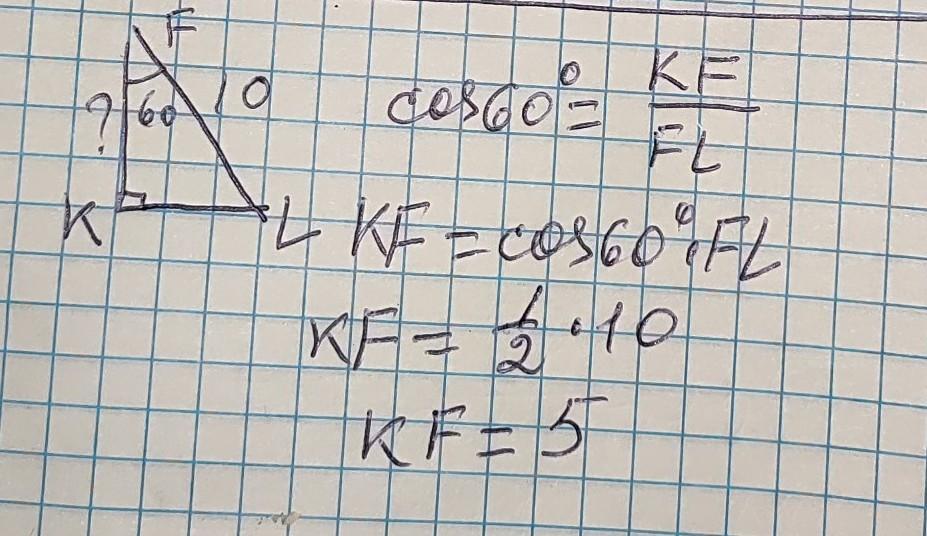 F
? 60 10
K L
cos60° = KF/FL
KF = cos60° · FL
KF = 1/2 · 10
KF = 5